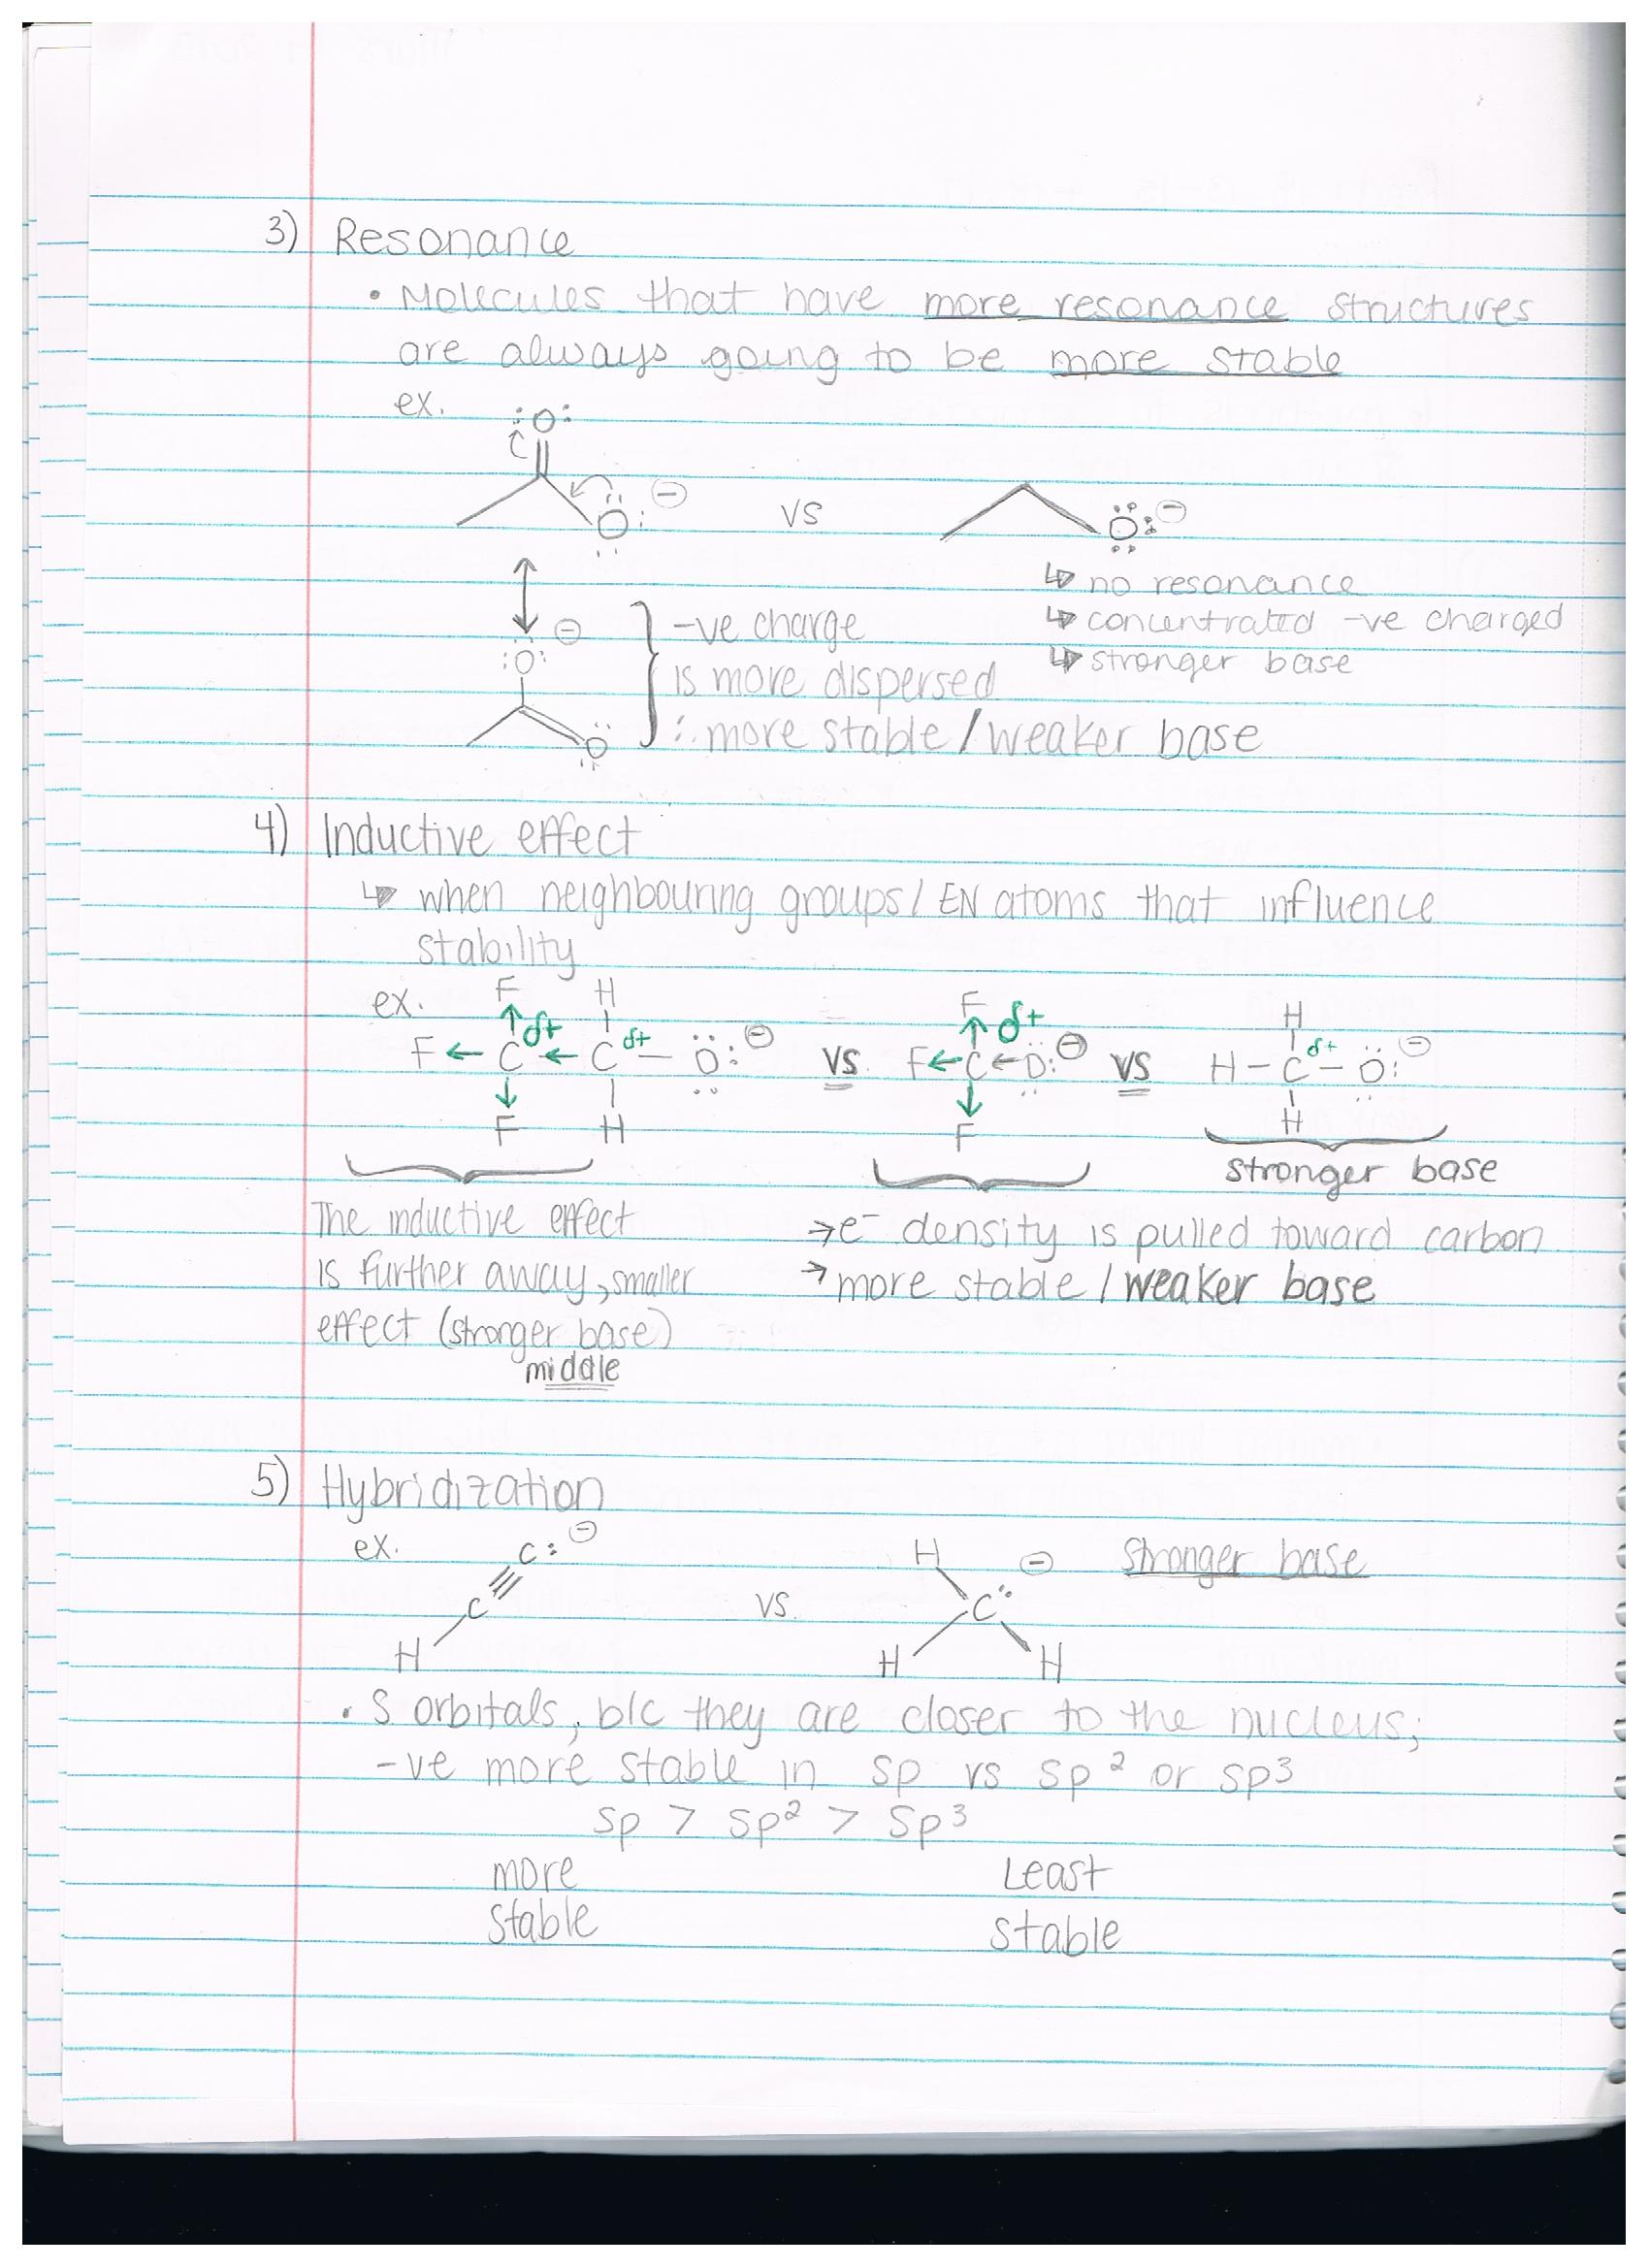 3) Resonance
• Molecules that have more resonance structures
are always going to be more stable
ex.
:O:
O: ⊖ vs O: ⊖
↳ no resonance
⊖ -ve charge ↳ concentrated -ve charged
:O: is more dispersed ↳ stronger base
O ∴ more stable / weaker base
4) Inductive effect
↳ when neighbouring groups / EN atoms that influence
stability
ex. F H F δ+ H
F ← C δ+ ← C δ+ — O: ⊖ vs. F ← C ← O: ⊖ vs H – C δ+ – O: ⊖
F H F H
stronger base
The inductive effect → e⁻ density is pulled toward carbon
is further away, smaller → more stable / weaker base
effect (stronger base)
middle
5) Hybridization
ex. C: ⊖ H ⊖ stronger base
C vs. C:
H H H
• S orbitals, b/c they are closer to the nucleus;
-ve more stable in sp vs sp² or sp³
sp > sp² > sp³
more Least
stable stable